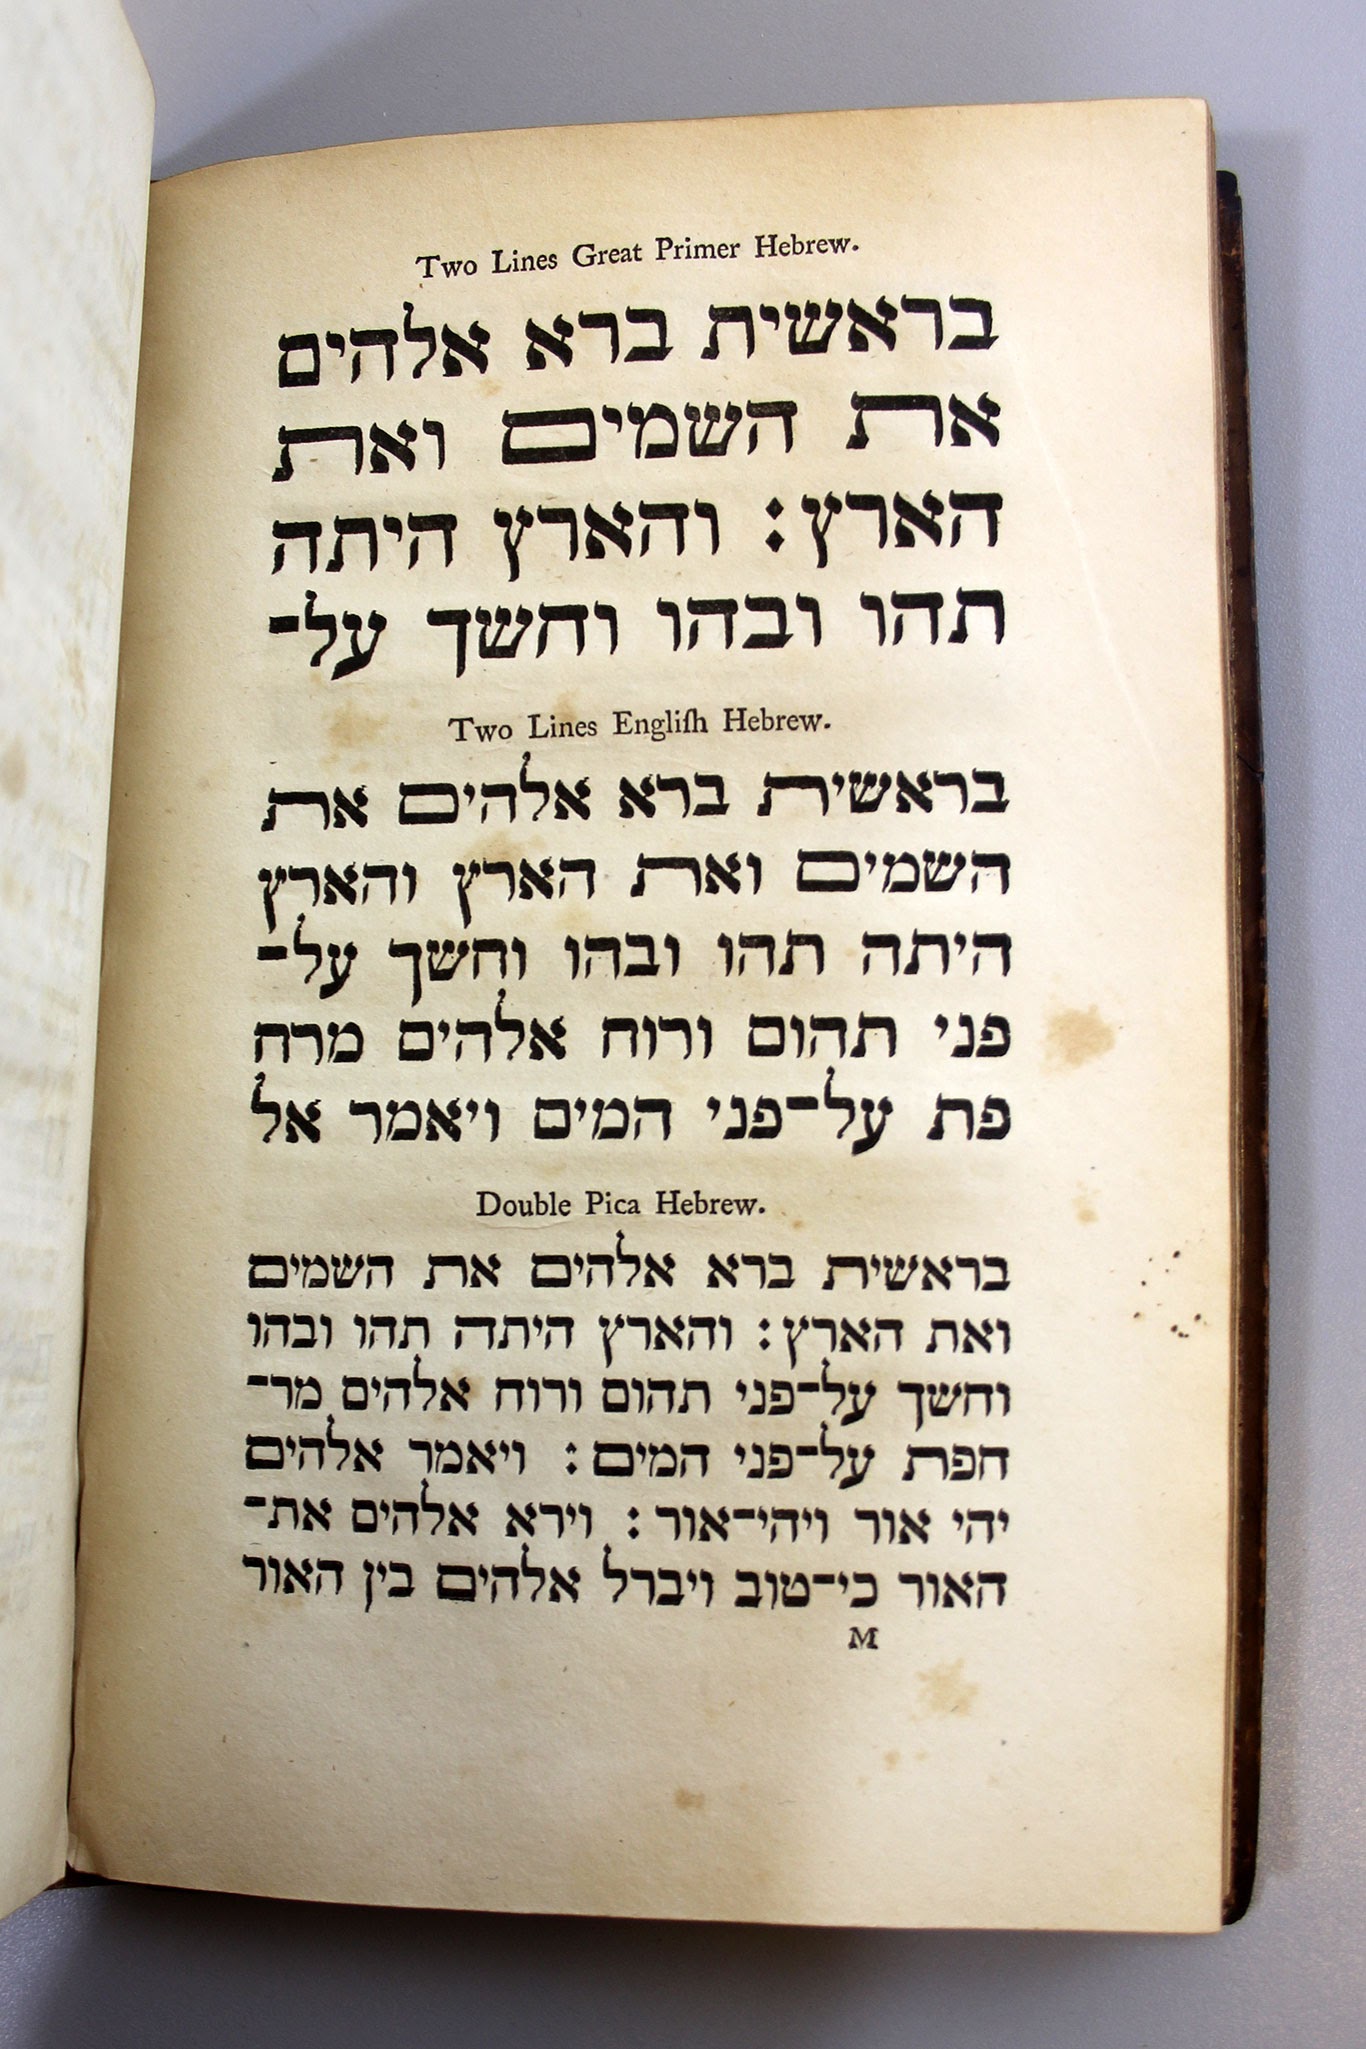 Two Lines Great Primer Hebrew.
בראשית ברא אלהים
את השמים ואת
הארץ : והארץ היתה
תהו ובהו וחשך על־
Two Lines Engliſh Hebrew.
בראשית ברא אלהים את
השמים ואת הארץ והארץ
היתה תהו ובהו וחשך על־
פני תהום ורוח אלהים מרח
פת על־פני המים ויאמר אל
Double Pica Hebrew.
בראשית ברא אלהים את השמים
ואת הארץ : והארץ היתה תהו ובהו
וחשך על־פני תהום ורוח אלהים מר־
חפת על־פני המים : ויאמר אלהים
יהי אור ויהי־אור : וירא אלהים את־
האור כי־טוב ויברל אלהים בין האור
M